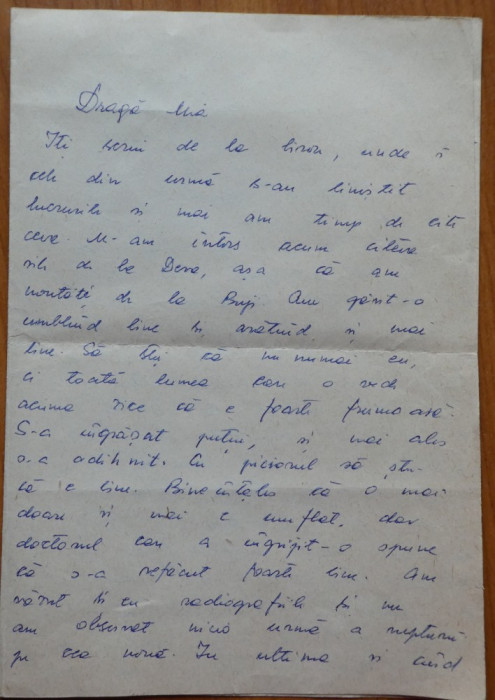 Dragă Mia
Iți scriu de la birou, unde
cele din urmă s-au liniștit
lucrurile și mai am timp de cite
ceva. M-am întors acum câteva
zile de la Deva, așa că am
noutăți de la Buji. Am găsit-o
umblînd bine și arătînd și mai
bine. Să știi că nu numai eu,
ci toată lumea care o vede
acuma zice că e foarte frumoasă.
S-a îngrășat puțin, și mai ales
s-a odihnit. Cu piciorul să ști
că e bine. Bine înțeles că o mai
doare și mai e umflat, dar
doctorul care a îngrijit-o spune
că s-a refăcut foarte bine. Am
văzut și eu radiografiile și nu
am observat nicio urmă a rupturii
pe cea nouă. In ultima si când